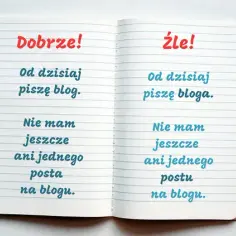 Dobrze!
Od dzisiaj
piszę blog.
Nie mam
jeszcze
ani jednego
posta
na blogu.
Źle!
Od dzisiaj
piszę bloga.
Nie mam
jeszcze
ani jednego
postu
na blogu.